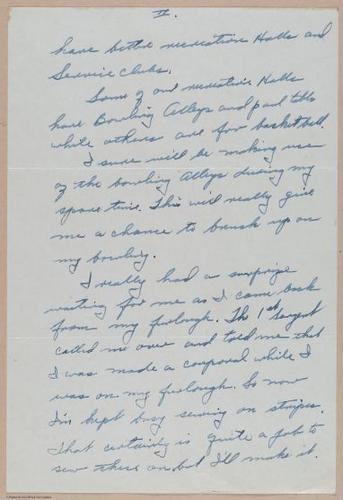 II.
have better recreation Halls and
Service Clubs.
Some of our recreation Halls
have Bowling Alleys and pool tbls
while others are for basketball.
I sure will be making use
of the bowling Alleys during my
spare time. This will really give
me a chance to brush up on
my bowling.
I really had a surprize
waiting for me as I came back
from my furlough. The 1st sargt
called me over and told me that
I was made a corporal while I
was on my furlough. So now
I'm kept busy sewing on stripes.
That certainly is quite a job to
sew these on but I'll make it.